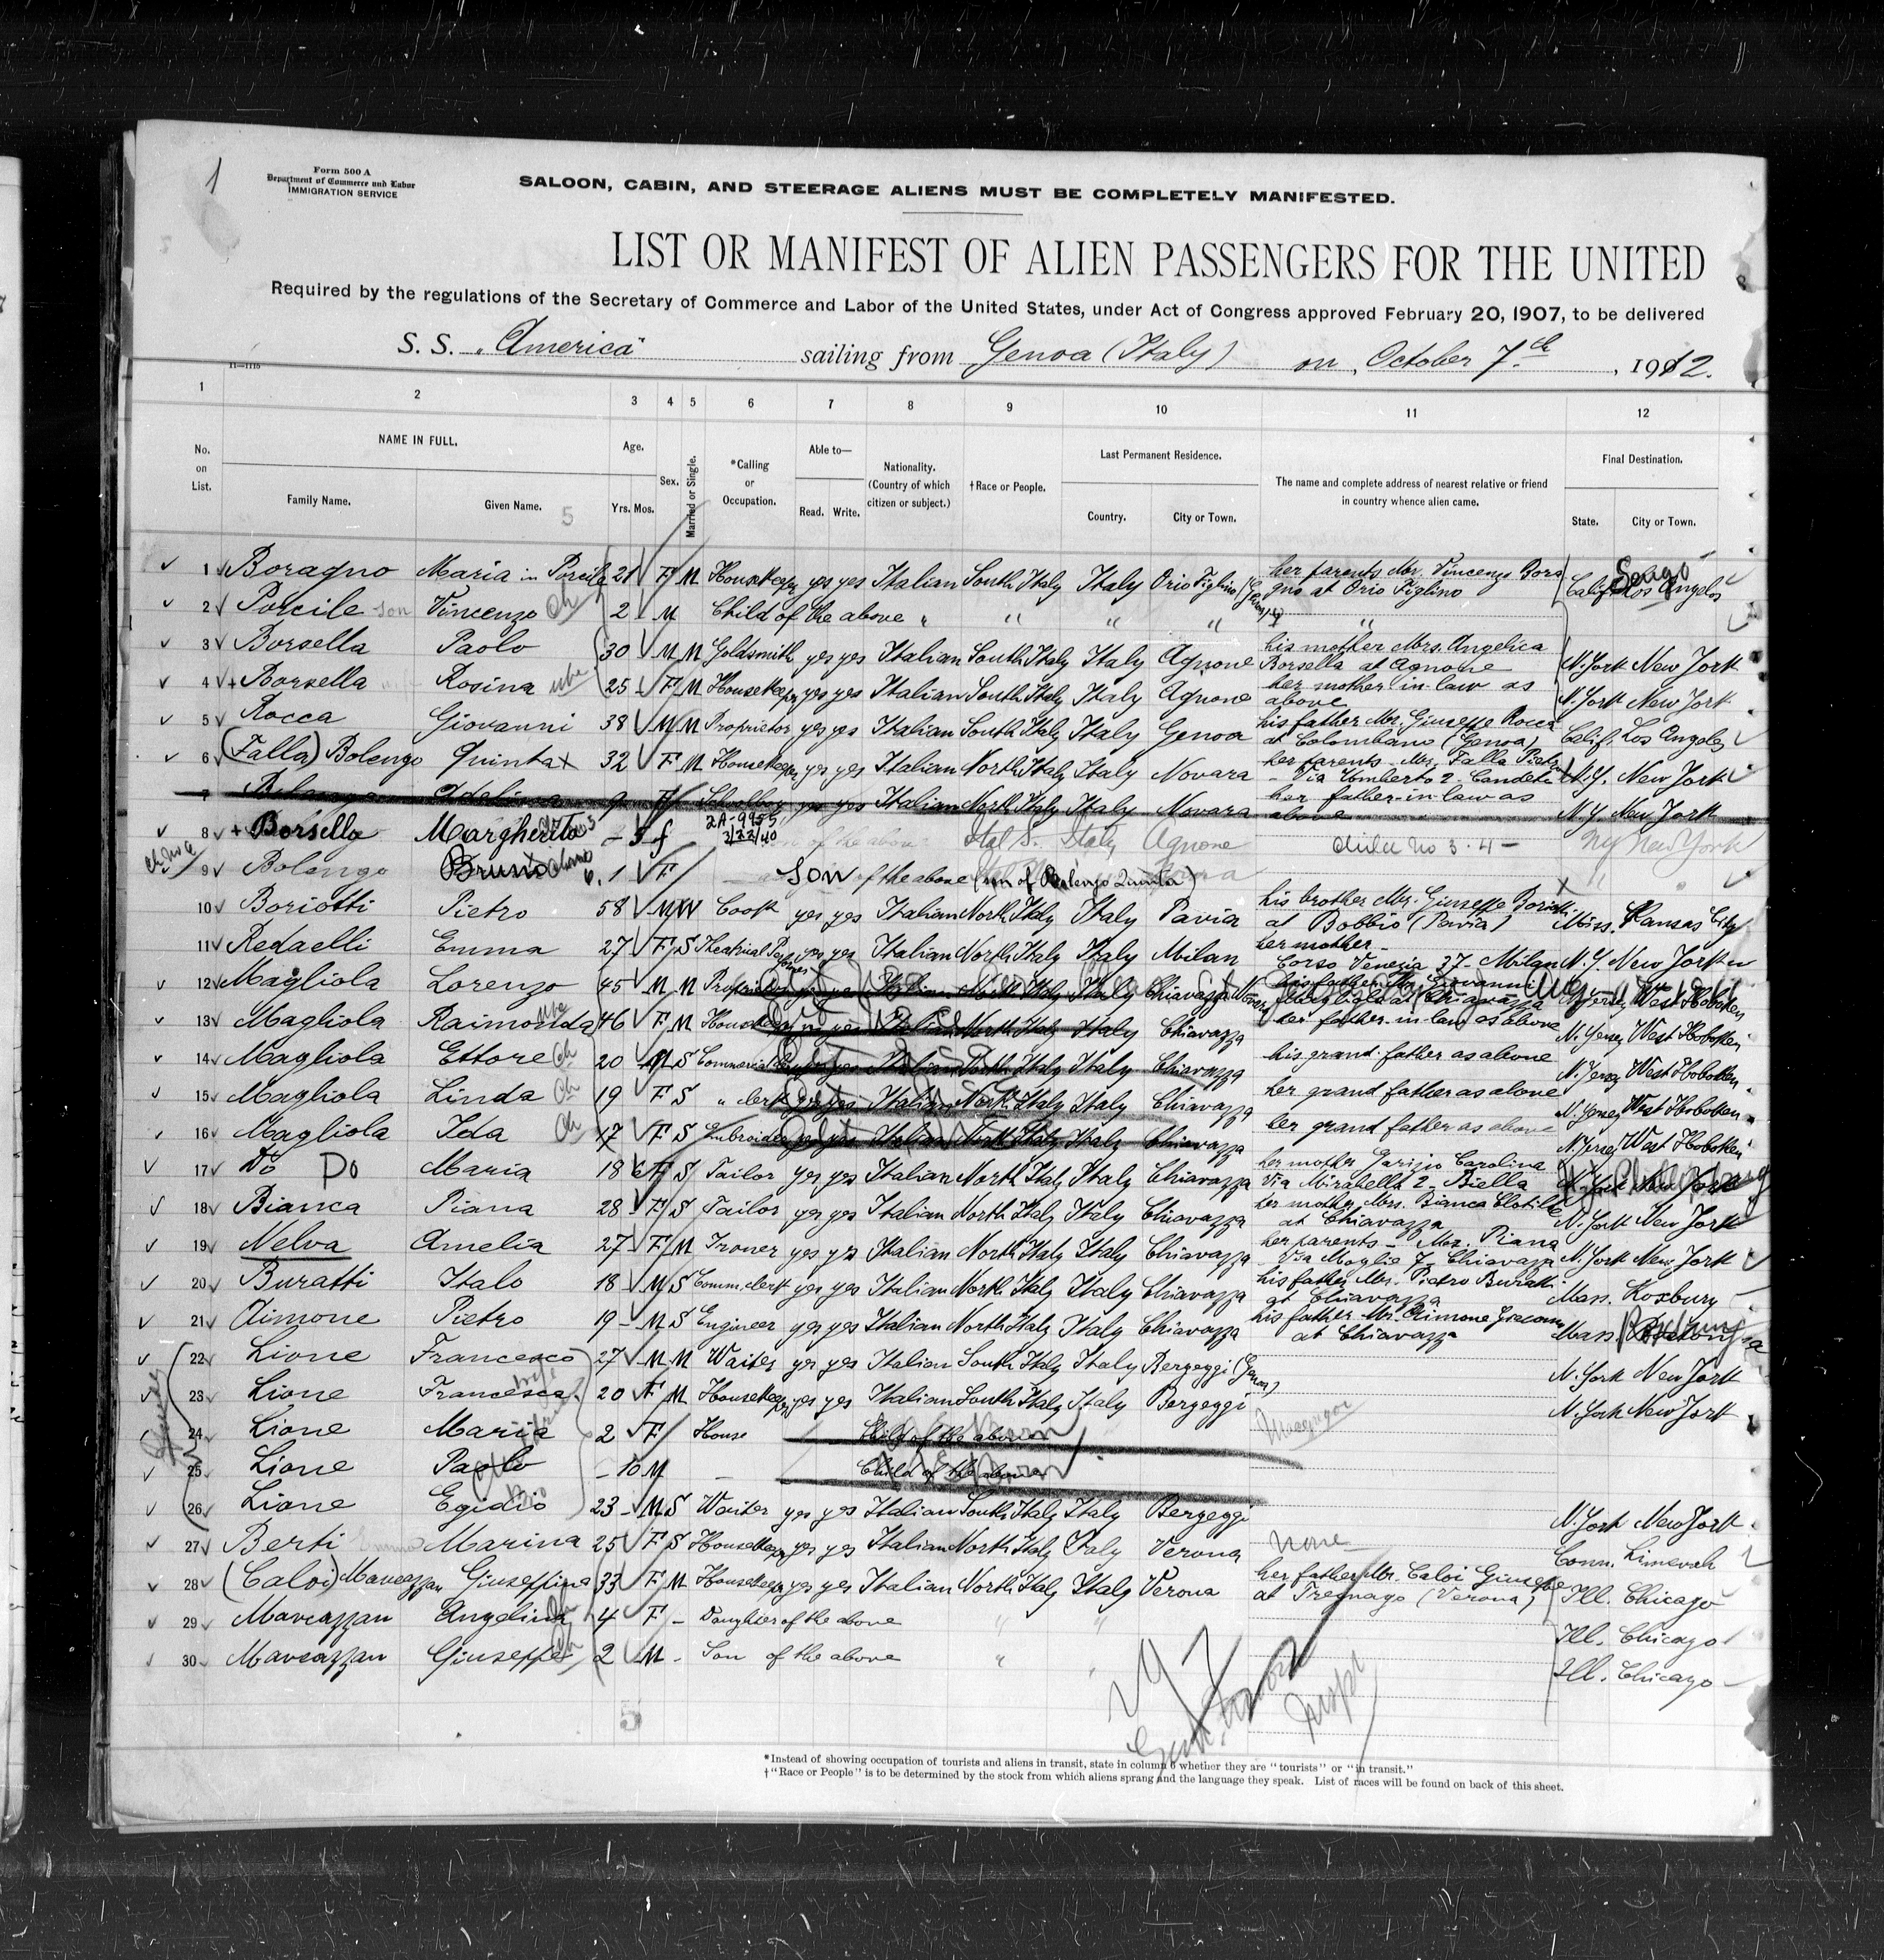 1
Form 500 A
Department of Commerce and Labor
IMMIGRATION SERVICE
SALOON, CABIN, AND STEERAGE ALIENS MUST BE COMPLETELY MANIFESTED.
LIST OR MANIFEST OF ALIEN PASSENGERS FOR THE UNITED
Required by the regulations of the Secretary of Commerce and Labor of the United States, under Act of Congress approved February 20, 1907, to be delivered
S. S. "America" sailing from Genoa (Italy) on, October 7th, 1912.
11—1115
1 2 3 4 5 6 7 8 9 10 11 12
No. on List. NAME IN FULL. Family Name. Given Name. Age. Yrs. Mos. Sex. Married or Single. *Calling or Occupation. Able to— Read. Write. Nationality. (Country of which citizen or subject.) †Race or People. Last Permanent Residence. Country. City or Town. The name and complete address of nearest relative or friend in country whence alien came. Final Destination. State. City or Town.
5
1 Boragno Maria in Porcile 21 F M Housekeeper yes yes Italian South Italy Italy Orio Figlino her parents Mr. Vincenzo Boragno at Orio Figlino Calif. Los Angeles
2 Porcile son Vincenzo Ch 2 M Child of the above " " " " "
3 Borsella Paolo 30 M M Goldsmith yes yes Italian South Italy Italy Agnone his mother Mrs. Angelica Borsella at Agnone N. York New York
4 + Borsella Rosina 25 F M Housekeeper yes yes Italian South Italy Italy Agnone her mother in law as above N. York New York
5 Rocca Giovanni 38 M M Proprietor yes yes Italian South Italy Italy Genoa his father Mr. Giuseppe Rocca at Colombano (Genoa) Calif. Los Angeles
6 (Falla) Bolengo Quinta x 32 F M Housekeeper yes yes Italian North Italy Italy Novara her parents Mr. Falla Pietro Via Umberto 2 - Candelo N.Y. New York
7 Bolengo Adelina 9 F Schoolboy yes yes Italian North Italy Italy Novara her father-in-law as above N. Y. New York
8 + Borsella Margherita - 5 f 2A-9955 3/22/40 Ital S. Italy Agnone child No 3 - 4 - NY New York
9 Bolengo Bruno 1 F Son of the above (son of Bolengo Quinta)
10 Boriotti Pietro 58 M W Cook yes yes Italian North Italy Italy Pavia his brother Mr. Giuseppe Boriotti at Bobbio (Pavia) Miss. Kansas City
11 Redaelli Emma 27 F S Theatrical yes yes Italian North Italy Italy Milan her mother - Corso Venezia 37 - Milan N. Y. New York
12 Magliola Lorenzo 45 M M Proprietor yes yes Italian North Italy Italy Chiavazza his father Mr. Giovanni Magliola at Chiavazza N. Jersey West Hoboken
13 Magliola Raimonda 46 F M Housekeeper yes yes Italian North Italy Italy Chiavazza her father-in-law as above N. Jersey West Hoboken
14 Magliola Ettore Ch 20 M S Commercial yes yes Italian North Italy Italy Chiavazza his grand father as above N. Jersey West Hoboken
15 Magliola Linda Ch 19 F S " clerk yes yes Italian North Italy Italy Chiavazza her grand father as above N. Jersey West Hoboken
16 Magliola Ida Ch 17 F S Embroider yes yes Italian North Italy Italy Chiavazza her grand father as above N. Jersey West Hoboken
17 Do Do Maria 18 F S Tailor yes yes Italian North Italy Italy Chiavazza her mother Garizio Carolina Via Mirabella 2 - Biella N. York New York
18 Bianca Piana 28 F S Tailor yes yes Italian North Italy Italy Chiavazza her mother Mrs. Bianca Clotilde at Chiavazza N. York New York
19 Nelva Amelia 27 F M Ironer yes yes Italian North Italy Italy Chiavazza her parents - Mr. Piana Via Moglie 7 - Chiavazza N. York New York
20 Buratti Italo 18 M S Comm. clerk yes yes Italian North Italy Italy Chiavazza his father Mr. Pietro Buratti at Chiavazza Mass. Roxbury
21 Aimone Pietro 19 M S Engineer yes yes Italian North Italy Italy Chiavazza his father Mr. Aimone Giacomo at Chiavazza Mass.
22 Lione Francesco 27 M M Waiter yes yes Italian South Italy Italy Bergeggi (Genoa) N. York New York
23 Lione Francesca wife 20 F M Housekeeper yes yes Italian South Italy Italy Bergeggi N. York New York
24 Lione Maria 2 F House Child of the above
25 Lione Paolo - 10 M - Child of the above
26 Lione Egidio 23 M S Waiter yes yes Italian South Italy Italy Bergeggi N. York New York
27 Berti Marina 25 F S Housekeeper yes yes Italian North Italy Italy Verona none Conn.
28 (Caloi) Marcazzan Giuseppina 33 F M Housekeeper yes yes Italian North Italy Italy Verona her father Mr. Caloi Giuseppe at Tregnago (Verona) Ill. Chicago
29 Marcazzan Angelina Ch 4 F - Daughter of the above " " Ill. Chicago
30 Marcazzan Giuseppe Ch 2 M - Son of the above " " Ill. Chicago
5
*Instead of showing occupation of tourists and aliens in transit, state in column 6 whether they are "tourists" or "in transit."
†"Race or People" is to be determined by the stock from which aliens sprang and the language they speak. List of races will be found on back of this sheet.